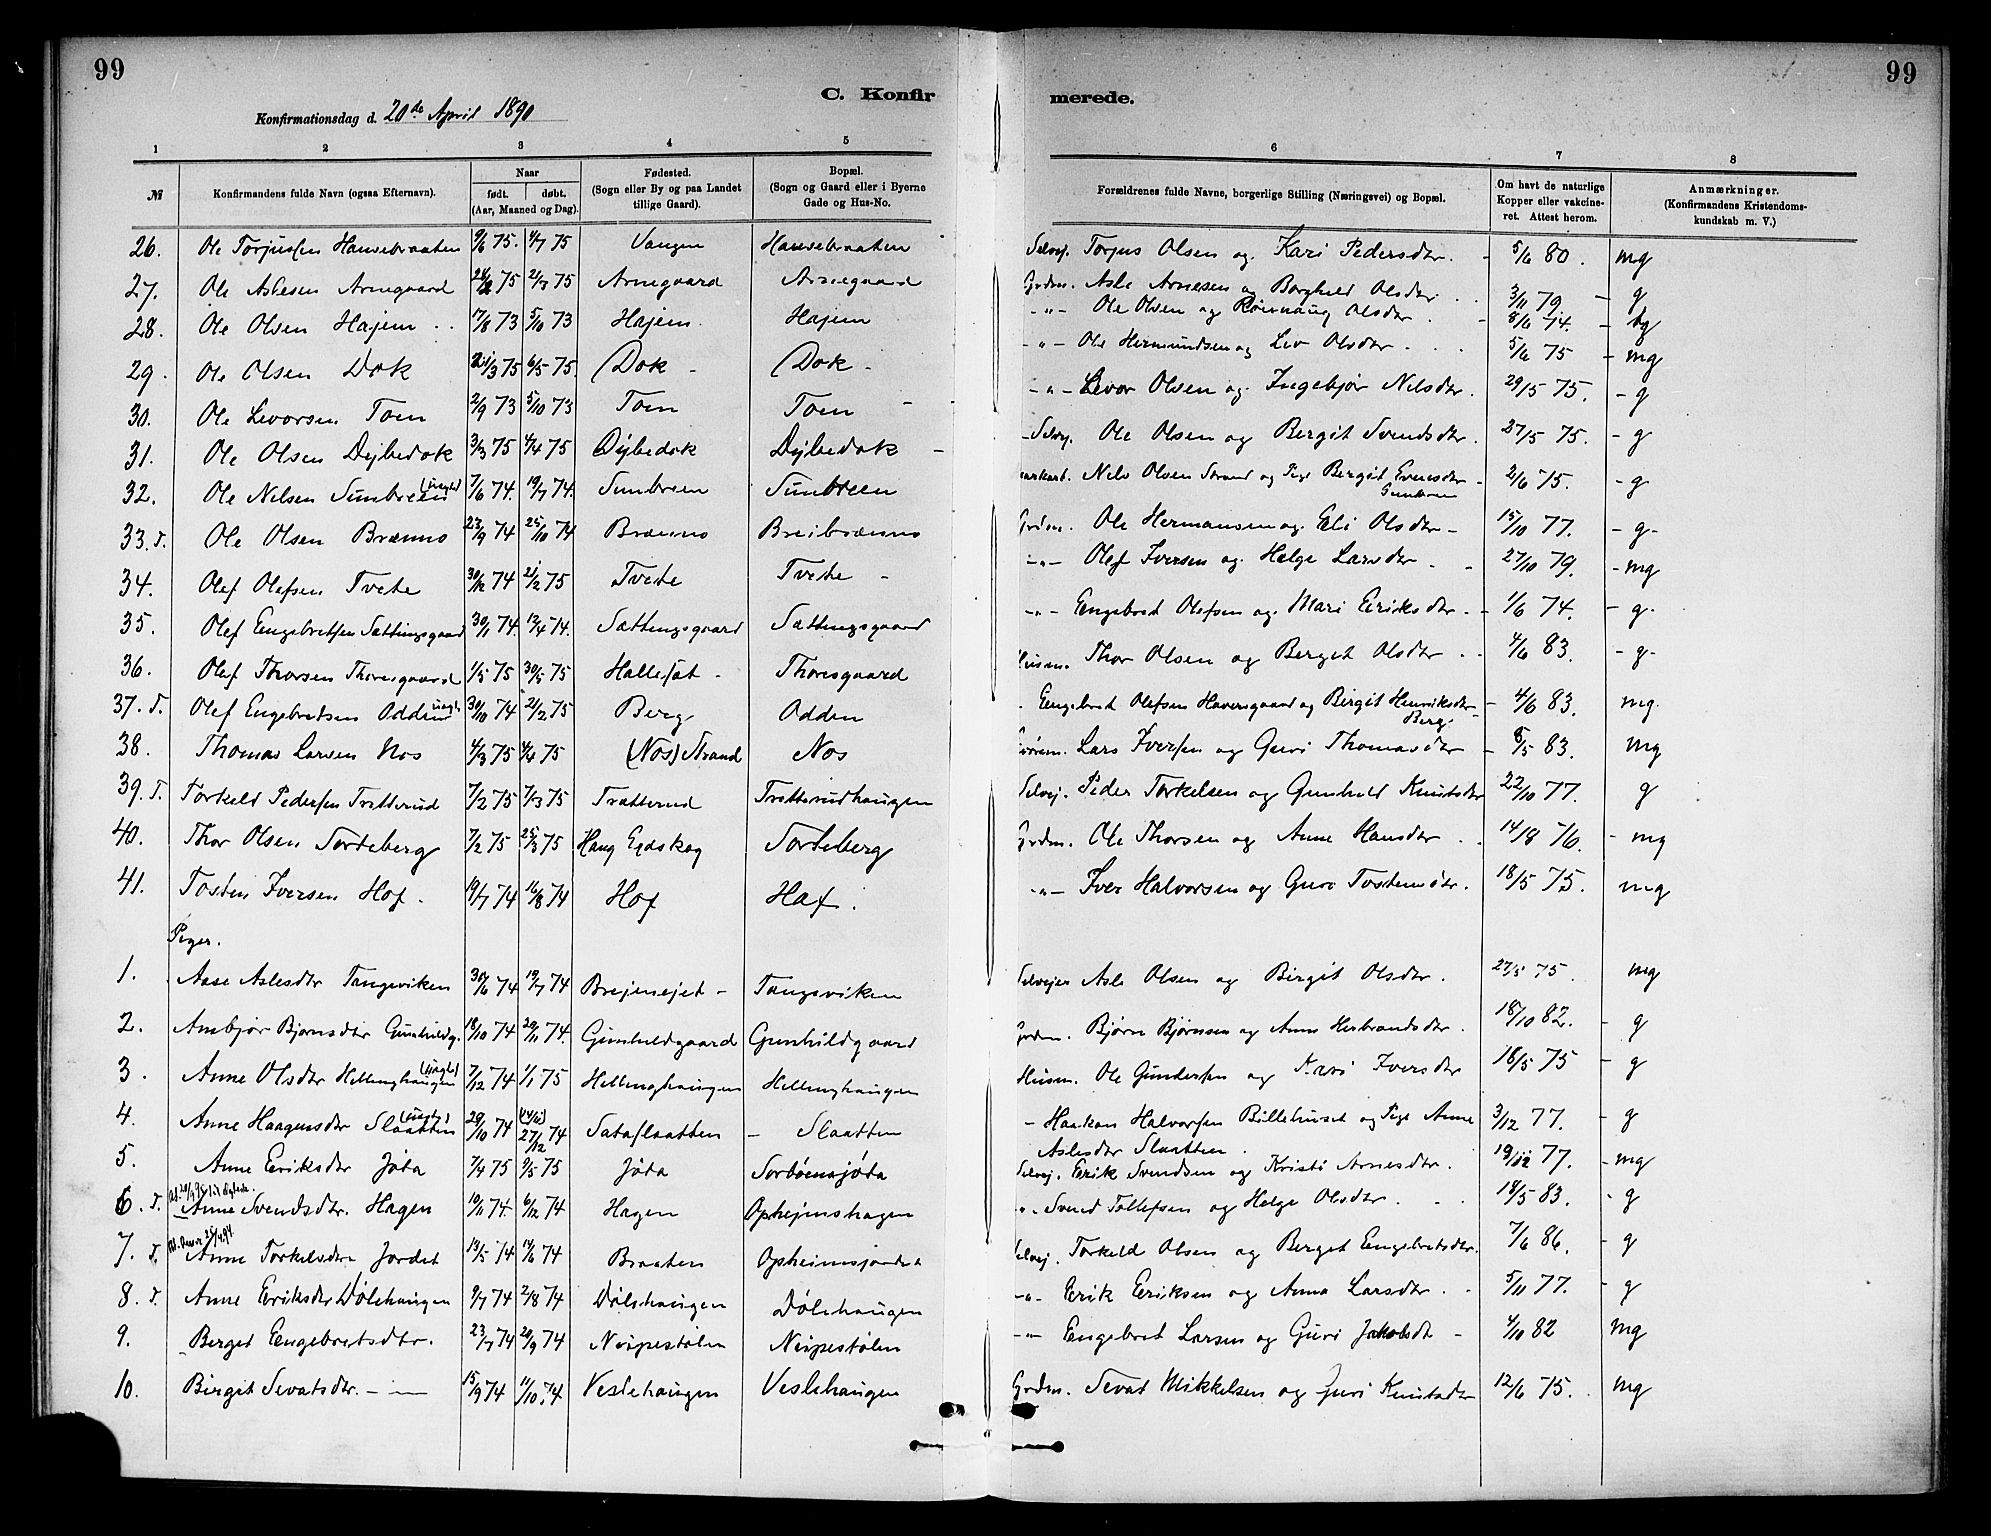 99
99
C. Konfir
merede.
Konfirmationsdag d. 20de April 1890
1 2 3 4 5 6 7 8
№ Konfirmandens fulde Navn (ogsaa Efternavn). Naar født. døbt. (Aar, Maaned og Dag). Fødested. (Sogn eller By og paa Landet tillige Gaard). Bopæl. (Sogn og Gaard eller i Byerne Gade og Hus-No. Forældrenes fulde Navne, borgerlige Stilling (Næringsvei) og Bopæl. Om havt de naturlige Kopper eller vakcineret. Attest herom. Anmærkninger. (Konfirmandens Kristendomskundskab m. V.)
26. Ole Torjussen Hansebraaten 9/6 75. 4/7 75 Vangen Hansebraaten Selvej. Torjus Olsen og Kari Pedersdtr. - 5/6 80. mg
27. Ole Aslesen Arnegaard 75 21/3 75 Arnegaard Arnegaard Grdm. Asle Arnesen og Borghild Olsdtr. 3/11 79 - g
28. Ole Olsen Hajem 17/8 73 5/10 73 Hajem. Hajem -"- Ole Olsen og Rønnaug Olsdtr. - 8/6 74. - tg
29. Ole Olsen Dok 21/3 75 6/5 75. Dok - Dok - -"- Ole Hermundsen og Liv Olsdtr. 5/6 75 - mg
30. Ole Levorsen Tom 2/9 73 5/10 73 Tom Tom - -"- Levor Olsen og Ingebjør Nilsdtr. 29/5 75. - g
31. Ole Olsen Dybedok 3/3 75 4/4 75 Dybedok Dybedok - Selvej. Ole Olsen og Bergit Svendsdtr. 27/5 75. - g
32. Ole Nilsen Sunbreen (uægte) 7/6 74. 19/7 74. Sunbreen Sunbreen Nils Olsen Strand og Pige Bergit Eversdtr Sunbreen - 2/6 75. - g
33. T. Ole Olsen Brænno 23/9 74 25/10 74 Brænno Breibrænno Grdm. Ole Hermansen og Eli Olsdtr - 15/10 77. - g-
34. Olef Olefsen Tvete 30/12 74 21/2 75 Tvete Tvete - -"- Olef Iversen og Helge Larsdtr - 27/10 79. - mg
35. Olef Engebretsen Sættingsgaard 30/1 74. 12/4 74. Sættingsgaard Sættingsgaard -"- Engebret Olefsen og Mari Eriksdtr. - 1/6 74. - g.
36. Olef Thorsen Thoresgaard 1/5 75 30/5 75 Hallesat - Thoresgaard Husm. Thor Olsen og Berget Olsdtr 4/6 83. - g-
37. T. Olef Engebretsen Odden uægte 30/10 74 21/2 75 Berg Odden Engebret Olefsen Haversgaard og Birgit Henriksdtr Berg. - 4/6 83. mg.
38. Thomas Larsen Nos 4/3 75 4/4 75 (Nos) Strand Nos Lars Iversen og Guri Thomasdtr - 8/5 83. mg
39. T. Torkeld Pedersen Trætterud 7/2 75 7/3 75 Trætterud Trætterudhaugen Selvej. Peder Torkelsen og Gunhild Knutsdtr 22/10 77. g
40. Thor Olsen Sorteberg 7/2 75 25/3 75 Haug Eggskog Sorteberg Grdm. Ole Thorsen og Anne Hansdtr 14/8 76. - mg
41. Tosten Iversen Hof. 19/7 74 16/8 74 Hof Hof. -"- Iver Halvorsen og Guro Tostensdtr. 18/5 75. mg
Piger.
1. Aase Aslesdtr Tangeviken 30/6 74 19/7 74 Brejenejet - Tangsviken Selvejer Asle Olsen og Birgit Olsdtr. 27/5 75. mg
2. Ambjør Bjørnsdtr Gunhildg. 18/10 74 20/11 74. Gunhildgaard Gunhildgaard Grdm. Bjørn Bjørnsen og Anne Herbrandsdtr. 18/10 82. - g
3. Anne Olsdtr Hellinghaugen (uægte) 7/12 74 1/1 75 Hellinghaugen Hellinghaugen Husm. Ole Gundersen og Kari Iversdtr 18/5 75 - g
4. Anne Haagensdtr Slaatten (uægte) 29/10 74 27/12 74 Sataslaatten - Slaatten - Haakon Halvorsen Billehuset og Pige Anne Aslesdtr Slaatten. 3/12 77. - g
5. Anne Eriksdtr Jøta 7/4 75 9/5 75 Jøta Sorbøensjøta Selvej. Erik Svendsen og Kristi Arnesdtr. 19/12 77. - mg
6. T. Anne Svendsdtr. Hagen 10/11 74. 6/12 74 Hagen Ophejmshagen -"- Svend Tollefsen og Helge Olsdtr. 18/5 83. - g
7. T. Anne Torkelsdtr Jordet 13/5 74 14/6 74 Braaten Opheimsjordet Selvej. Torkeld Olsen og Berget Engebretsdtr. 7/6 86. - g
8. T. Anne Eriksdtr Dølehaugen 9/7 74 2/8 74 Dølehaugen Dølehaugen -"- Erik Eriksen og Anna Larsdtr. 5/11 77. - g
9. Berget Engebretsdtr. 23/7 74 20/9 74 Nøipestølen Nøipestølen -"- Engebret Larsen og Guri Jakobsdt - 4/10 82 mg
10. Birgit Sevatsdtr. - - 15/9 74 11/10 74 Veslehaugen Veslehaugen Grdm. Sevat Mikkelsen og Guri Knutsdtr 12/6 75. mg